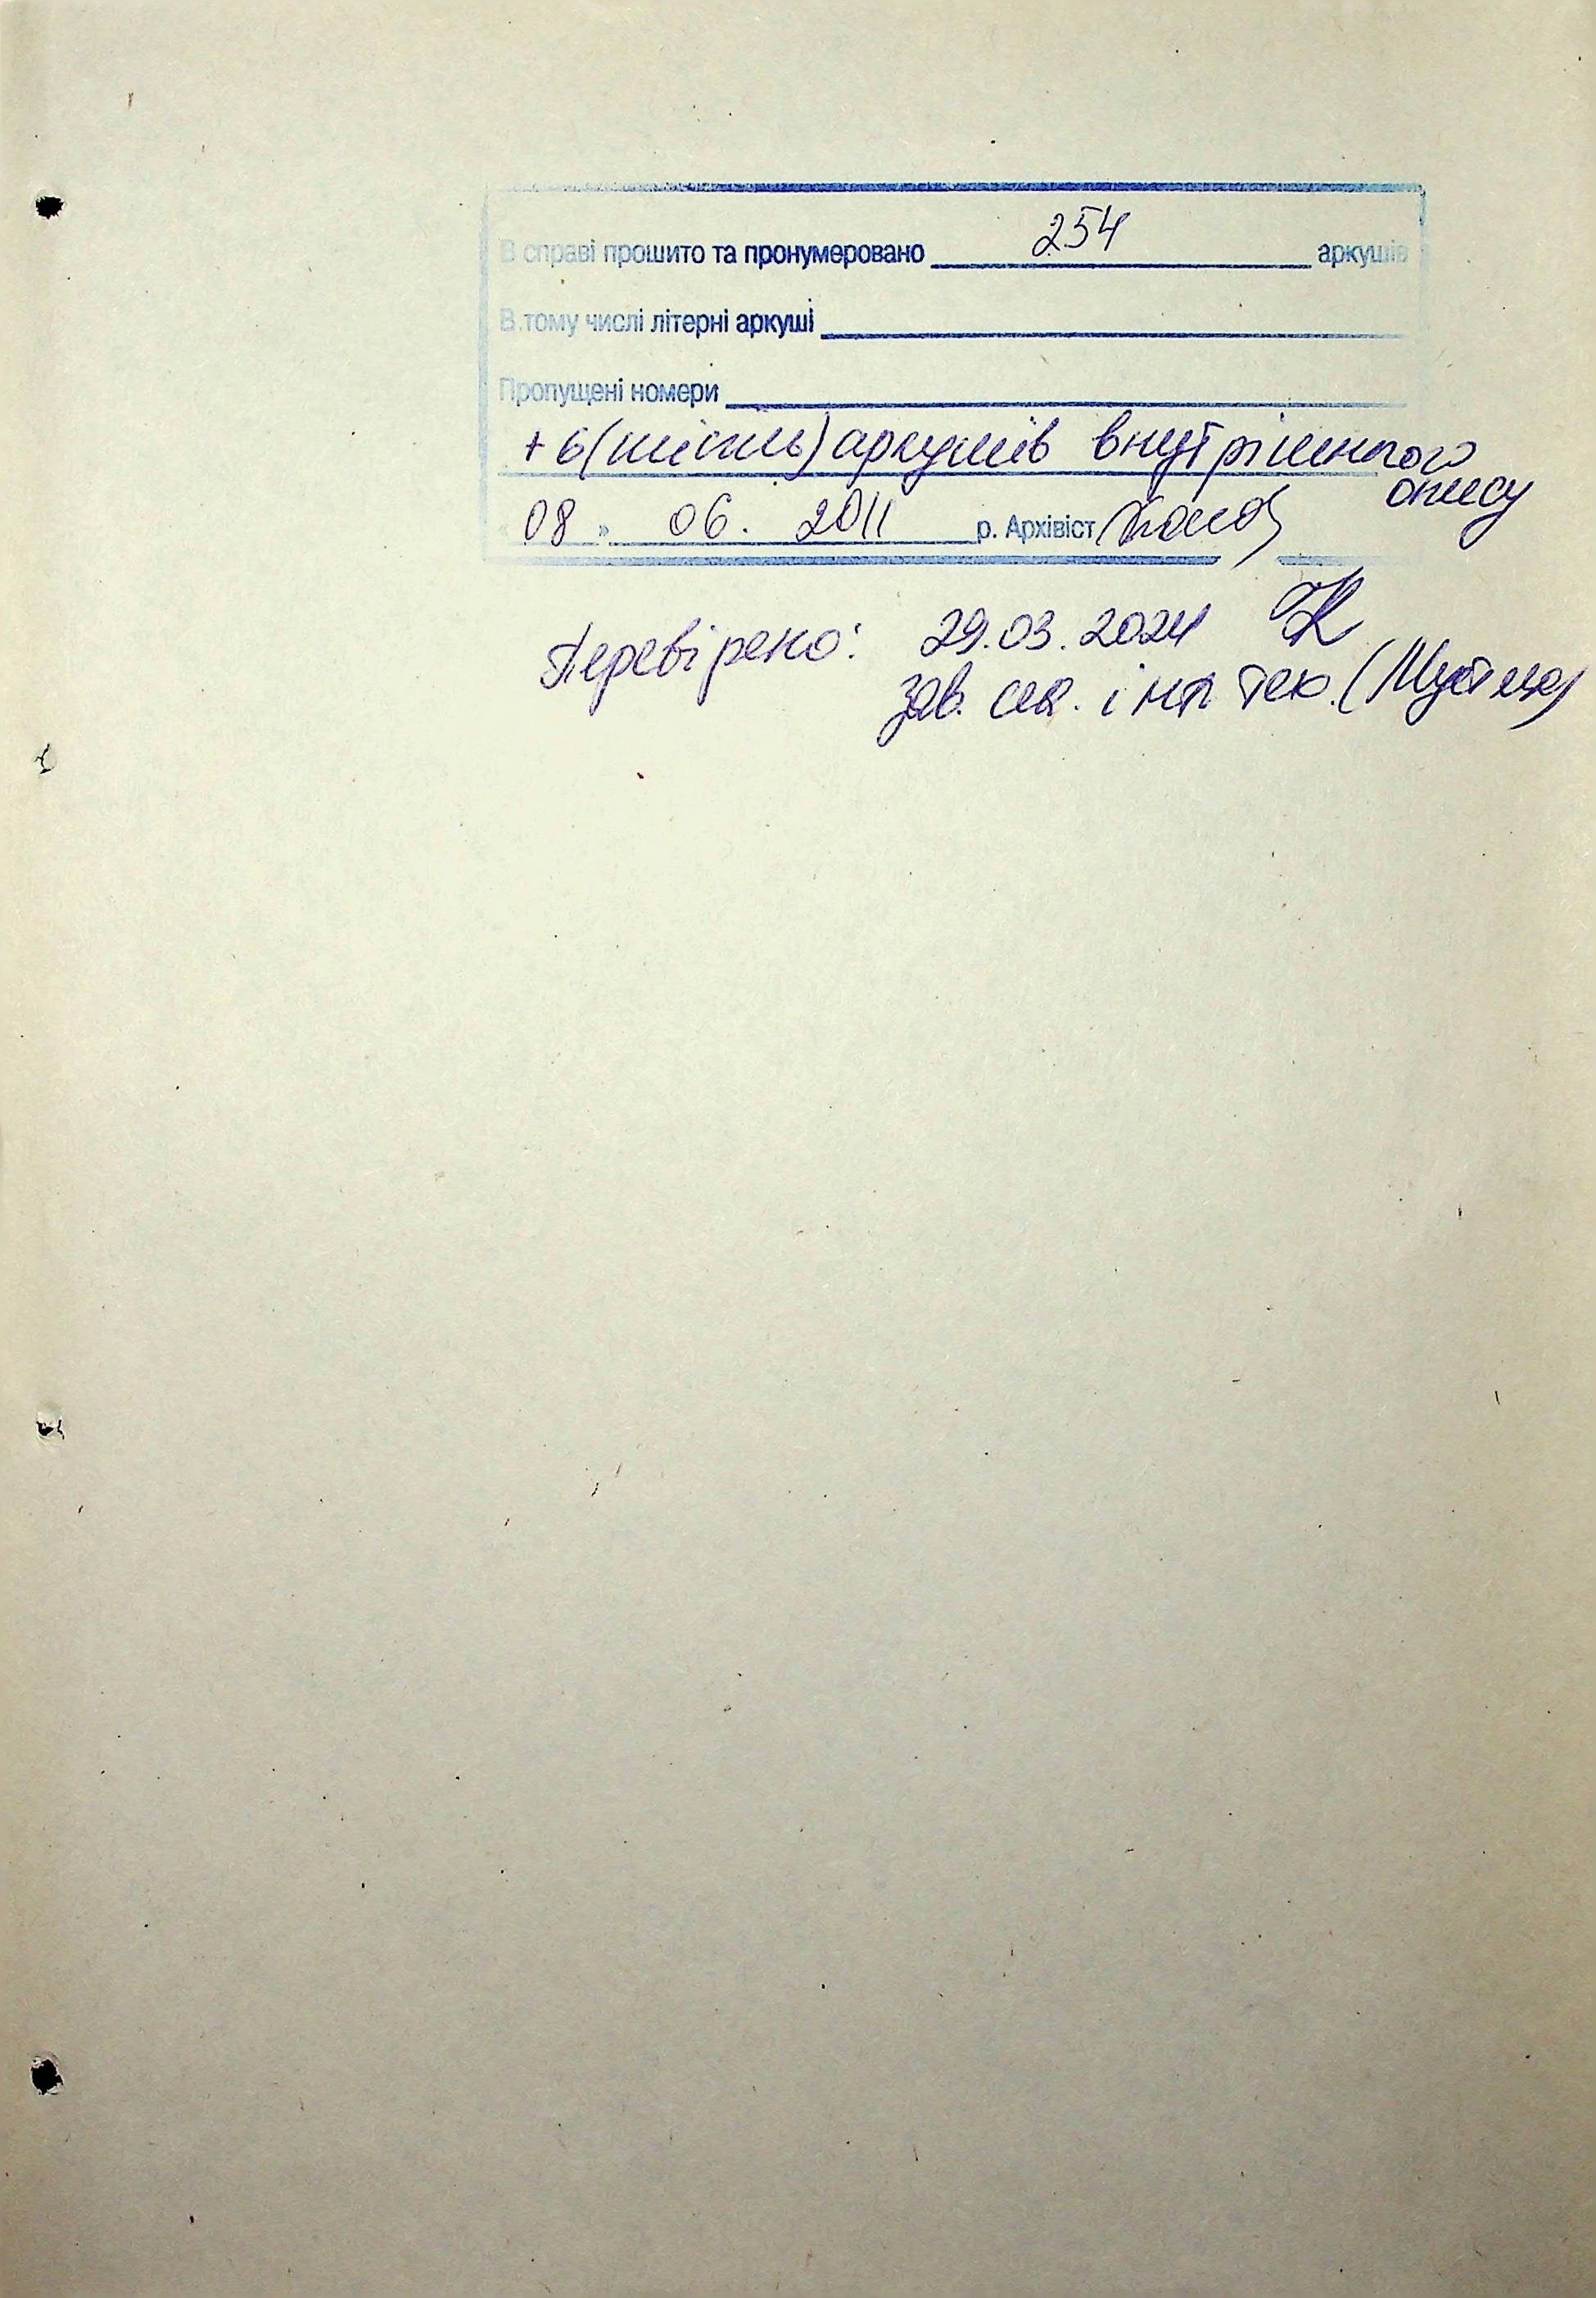 В справі прошито та пронумеровано 254 аркушів
В тому числі літерні аркуші
Пропущені номери
+ 6 (шість) аркушів внутрішнього
опису
« 08 » 06. 2011 р. Архівіст
Перевірено: 29.03.2024
зав. сек.